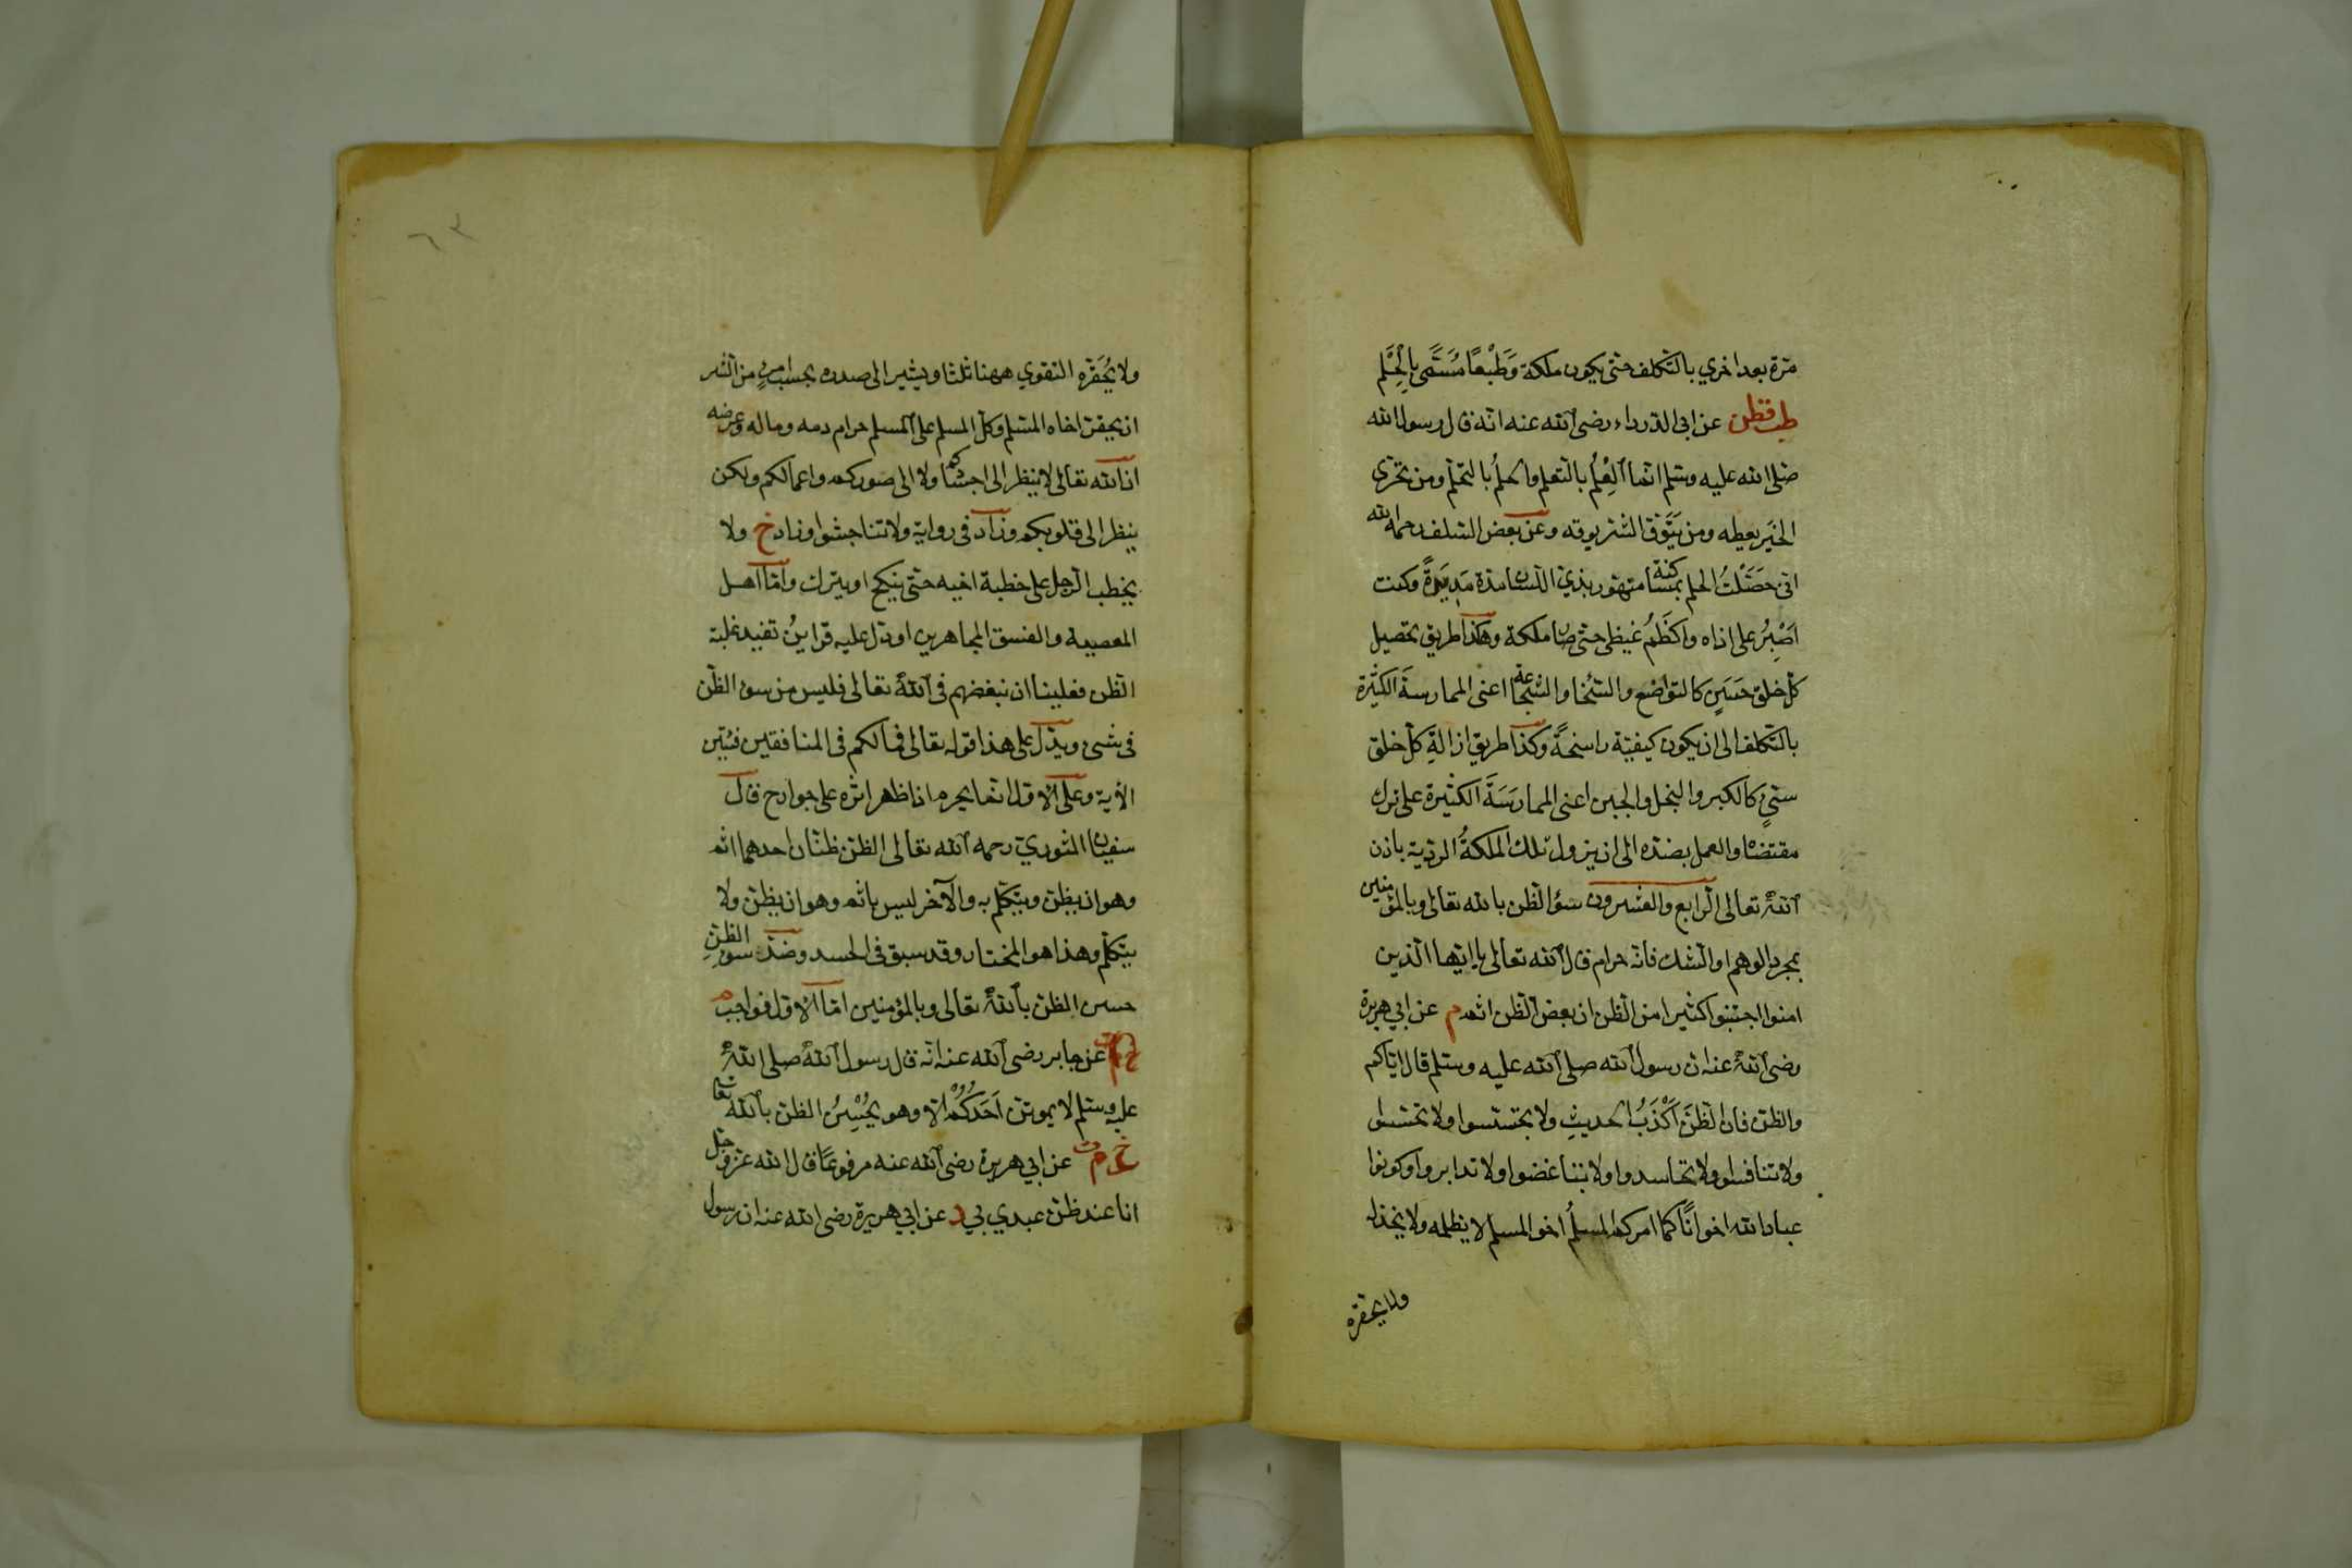 مرّة بعد اخري بالتّكلف حتّى يكون ملكة وَطَبْعًا مُسَمَّى بِالْحِلْم
طب قطن عن ابى الدّرداء رضى الله عنه انّه قال رسول الله
صلى الله عليه وسلم انّما العِلْمُ بالتعلم والحلمُ بالتحلم ومن يتحرّى
الخَير يعطه ومن يَتَّوَقَّ الشّر يوقه وعن بعض السّلف رحمه الله
انى حَصَّلْتُ الحلم بمساكنة متهوّر بذيئ اللسان مدّة مَدِيدَةً وكنت
اَصْبِرُ على اذاه واكظَمُ غيظى حتى صار ملكة وهكذا طريق تحصيل
كل خلق حَسَنٍ كالتواضع والسّخا والشّجاعة اعنى الممارسةَ الكثيرة
بالتّكلف الى ان يكون كيفيّة راسخةً وكذا طريق ازالة كلّ خلق
سيّئٍ كالكبر والبخل والجبن اعنى الممارَسَةَ الكثيرة على ترك
مقتضاه والعمل بضدّه الى ان يزول تلك الملكةُ الرديّة باذن
الله تعالى الرابع والعشرون سؤ الظّن بالله تعالى وبالمؤمنين
بمجرد الوهم او الشك فانّه حرام قال الله تعالى يا ايّها الذين
امنوا اجتنبوا كثيرا من الظن ان بعض الظن اثم خ م عن ابي هريرة
رضى الله عنه ان رسول الله صلى الله عليه وسلم قال ايّاكم
والظنّ فان الظنَّ اَكْذَبُ الحديثِ ولا تجسّسوا ولا تحسّسوا
ولا تنافسوا ولا تحاسدوا ولا تباغضوا ولا تدابروا وكونوا
عباد الله اخوانًا كما امركم المسلمُ اخو المسلم لا يظلمه ولا يخذله
ولا يحقره
٦٣
ولا يُحَقِّره التقوي ههنا ثلثا ويشير الى صدره بحسب امرئٍ من الشر
ان يحقر اخاه المسلم وكلّ المسلم على المسلم حرام دمه وماله وعرضه
ان الله تعالى لا ينظر الى اجسادكم ولا الى صوركم واعمالكم ولكن
ينظر الى قلوبكم وزاد فى رواية ولا تناجشوا وزاد خ ولا
يخطب الرّجل على خطبة اخيه حتّى ينكح او يترك وامّا اهل
المعصية والفسق المجاهرين او دلّ عليه قراينُ تفيد غلبة
الظن فعلينا ان نبغضهم فى الله تعالى فليس من سوء الظن
فى شىء ويدلّ على هذا قوله تعالى فما لكم فى المنافقين فئتين
الأية وعلى الاوّل انّما يحرم اذا ظهر اثره على جوارح قال
سفيان الثوريّ رحمه الله تعالى الظن ظنّان احدهما اثم
وهو ان يظن ويتكلّم به والآخر ليس باثم وهو ان يظن ولا
يتكلّم وهذا هو المختار وقد سبق فى الحسد وضدّ سوء الظنّ
حسن الظن بالله تعالى وبالمؤمنين امّا الاوّل فواجب م
عن جابر رضى الله عنه انّه قال رسول الله صلى الله
عليه وسلم لا يموتن اَحَدُكُمْ الّا وهو يُحْسِنُ الظن بالله تعالى
خ م ت عن ابي هريرة رضى الله عنه مرفوعًا قال الله عزّ وجلّ
انا عند ظنّ عبدي بي د عن ابي هريرة رضى الله عنه ان رسول